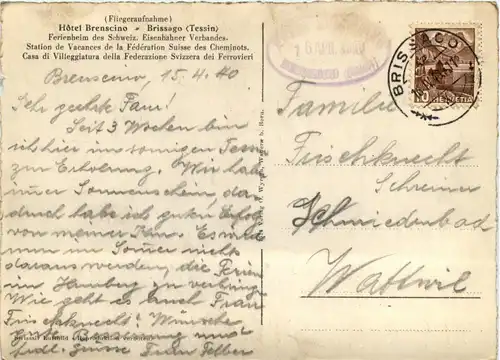 (Fliegeraufnahme)
Hôtel Brenscino - Brissago (Tessin)
Ferienheim des Schweiz. Eisenbahner Verbandes.
Station de Vacances de la Fédération Suisse des Cheminots.
Casa di Villeggiatura della Federazione Svizzera dei Ferrovieri
BRISSAGO
HELVETIA
10
Brenscino, 15.4.40
Sehr geehrte Frau!
Seit 3 Wochen bin
ich hier im sonnigen Tessin
zur Erholung. Wir hab
immer Sonnenschein, da
durch habe ich guten Erfolg
von meiner Kur. Es wird
nun im Sommer nicht
daraus werden, die Ferien
im Hamberg zu verbring
Wie geht es auch Frau
Frischknecht? Wünsche
gute Besserung und
frdl. Grüsse Frau Felber
Familie
Frischknecht
Schreiner
Schmiedenbad
Wattwil